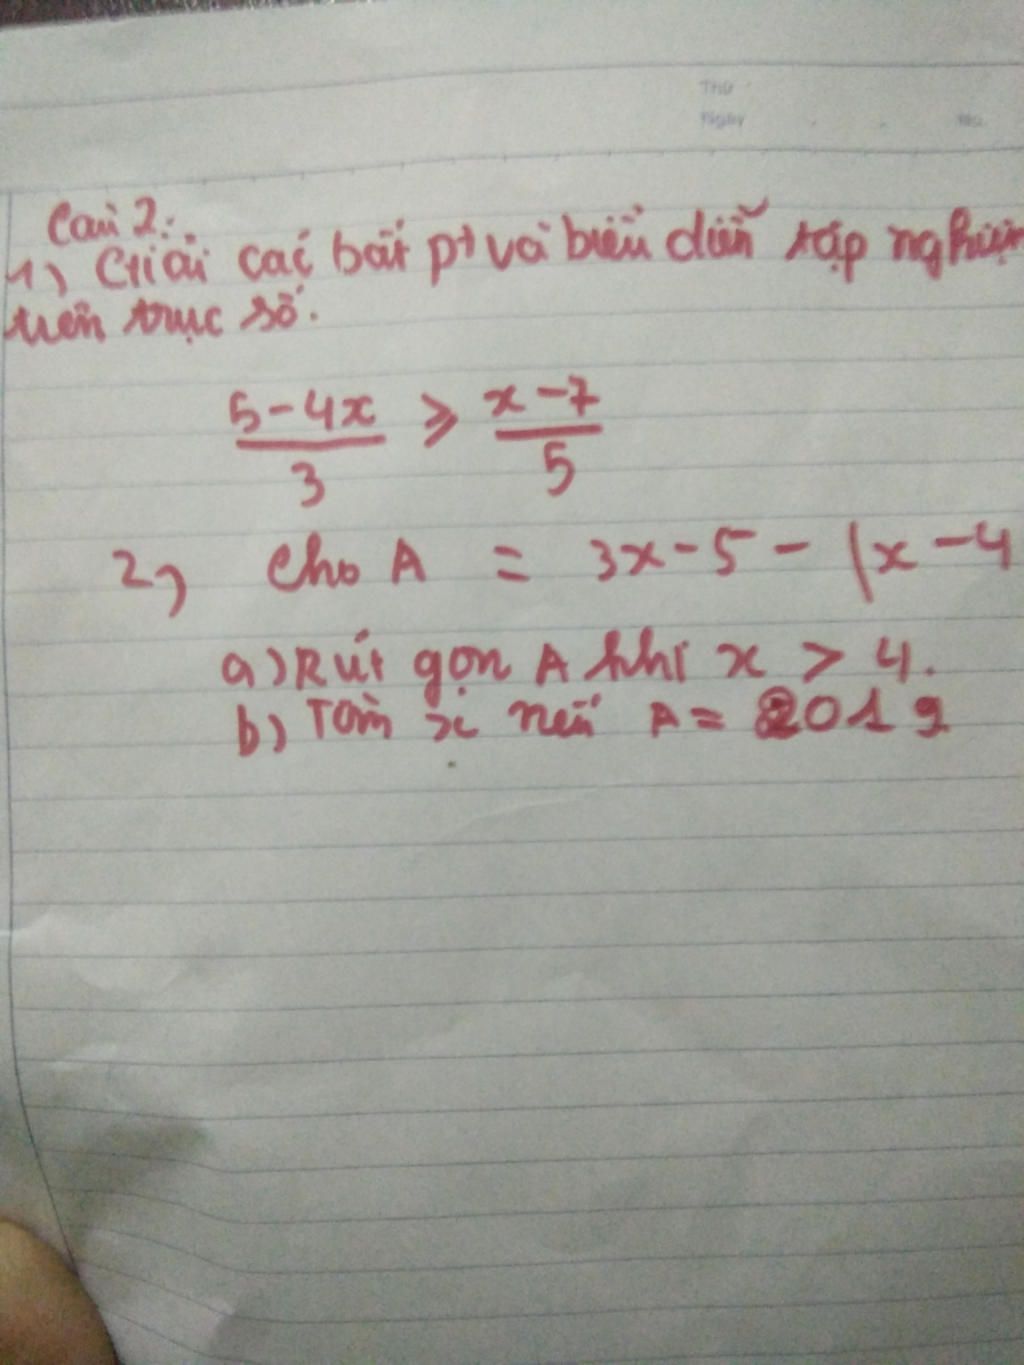 Thứ
Ngày No.
Câu 2:
1) Giải các bất pt và biểu diễn tập nghiệm
trên trục số.
5-4x / 3 ≥ x-7 / 5
2) Cho A = 3x-5- |x-4
a) Rút gọn A khi x > 4.
b) Tìm x nếu A = 2019